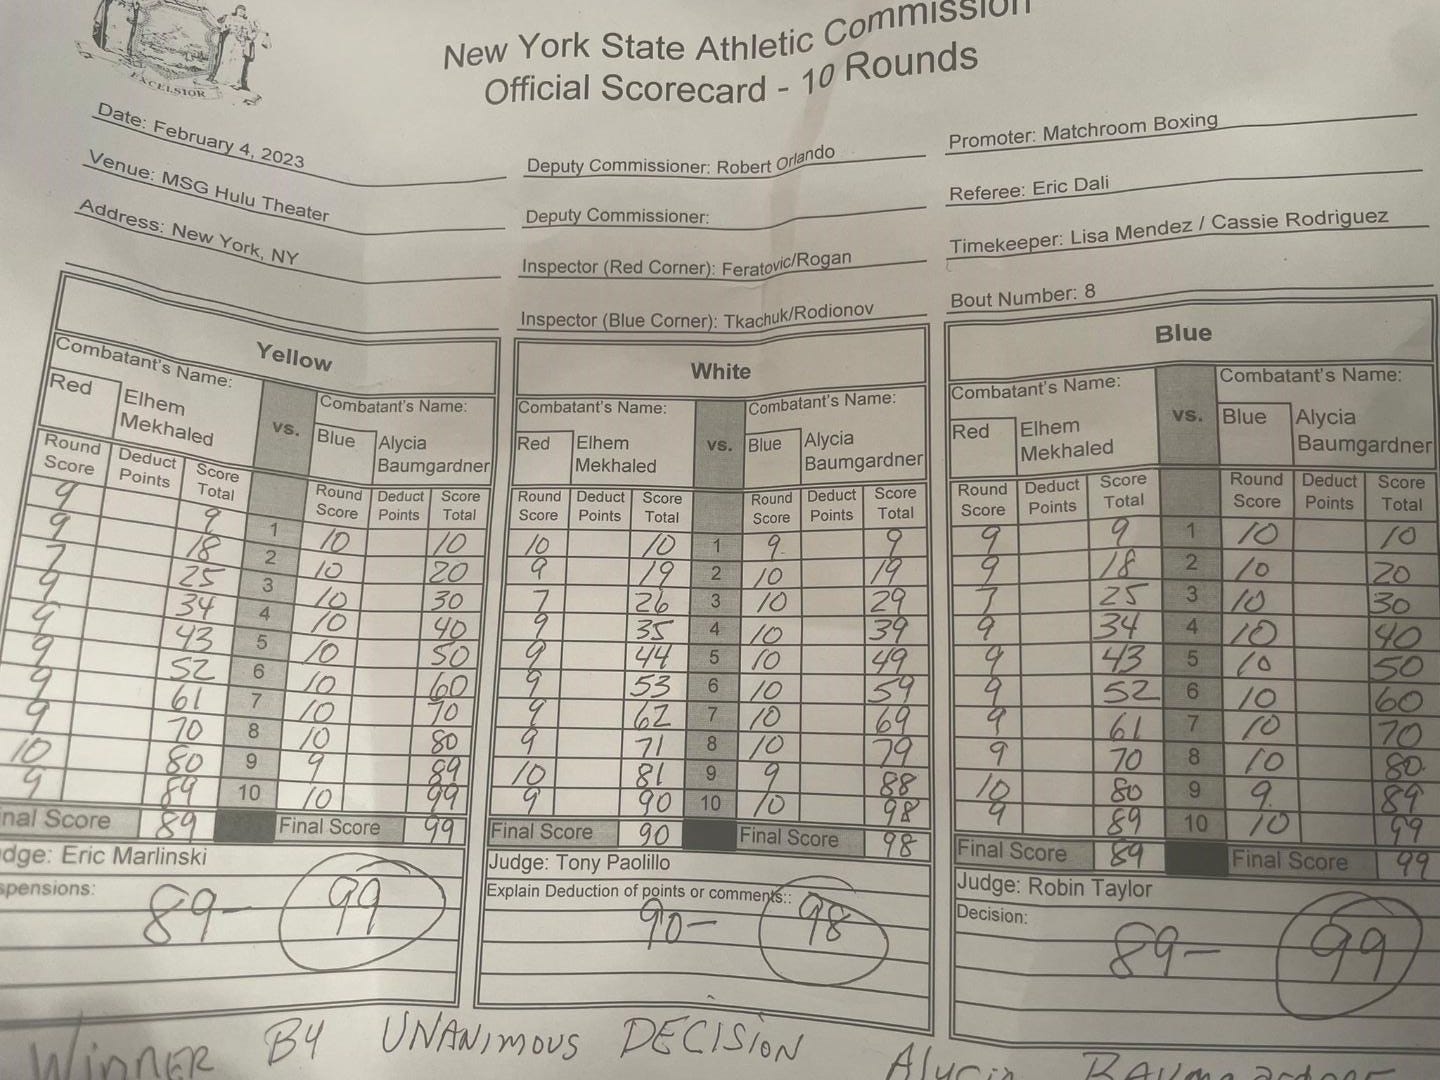 EXCELSIOR
New York State Athletic Commission
Official Scorecard - 10 Rounds
Date: February 4, 2023
Venue: MSG Hulu Theater
Address: New York, NY
Deputy Commissioner: Robert Orlando
Deputy Commissioner:
Inspector (Red Corner): Feratovic/Rogan
Inspector (Blue Corner): Tkachuk/Rodionov
Promoter: Matchroom Boxing
Referee: Eric Dali
Timekeeper: Lisa Mendez / Cassie Rodriguez
Bout Number: 8
Yellow
Combatant's Name: vs. Combatant's Name:
Red Elhem Mekhaled Blue Alycia Baumgardner
Round Score Deduct Points Score Total Round Score Deduct Points Score Total
9 9 1 10 10
9 18 2 10 20
7 25 3 10 30
9 34 4 10 40
9 43 5 10 50
9 52 6 10 60
9 61 7 10 70
9 70 8 10 80
10 80 9 9 89
9 89 10 10 99
nal Score 89 Final Score 99
dge: Eric Marlinski
spensions:
89- 99
White
Combatant's Name: vs. Combatant's Name:
Red Elhem Mekhaled Blue Alycia Baumgardner
Round Score Deduct Points Score Total Round Score Deduct Points Score Total
10 10 1 9 9
9 19 2 10 19
7 26 3 10 29
9 35 4 10 39
9 44 5 10 49
9 53 6 10 59
9 62 7 10 69
9 71 8 10 79
10 81 9 9 88
9 90 10 10 98
Final Score 90 Final Score 98
Judge: Tony Paolillo
Explain Deduction of points or comments::
90- 98
Blue
Combatant's Name: vs. Combatant's Name:
Red Elhem Mekhaled Blue Alycia Baumgardner
Round Score Deduct Points Score Total Round Score Deduct Points Score Total
9 9 1 10 10
9 18 2 10 20
7 25 3 10 30
9 34 4 10 40
9 43 5 10 50
9 52 6 10 60
9 61 7 10 70
9 70 8 10 80
10 80 9 9 89
9 89 10 10 99
Final Score 89 Final Score 99
Judge: Robin Taylor
Decision:
89- 99
WINNER BY UNANIMOUS DECISION Alycia Baumgardner